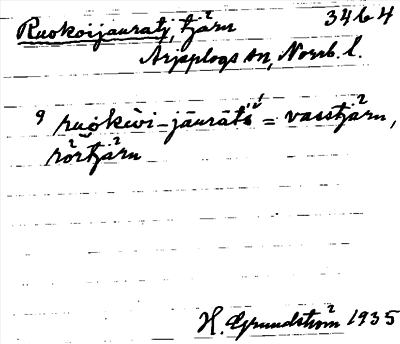 Ruokoijauratj, tjärn 3464
Arjeplogs sn, Norrb. l.
ruokɯ̀i-jāurāts = vasstjärn,
rörtjärn
H. Grundström 1935